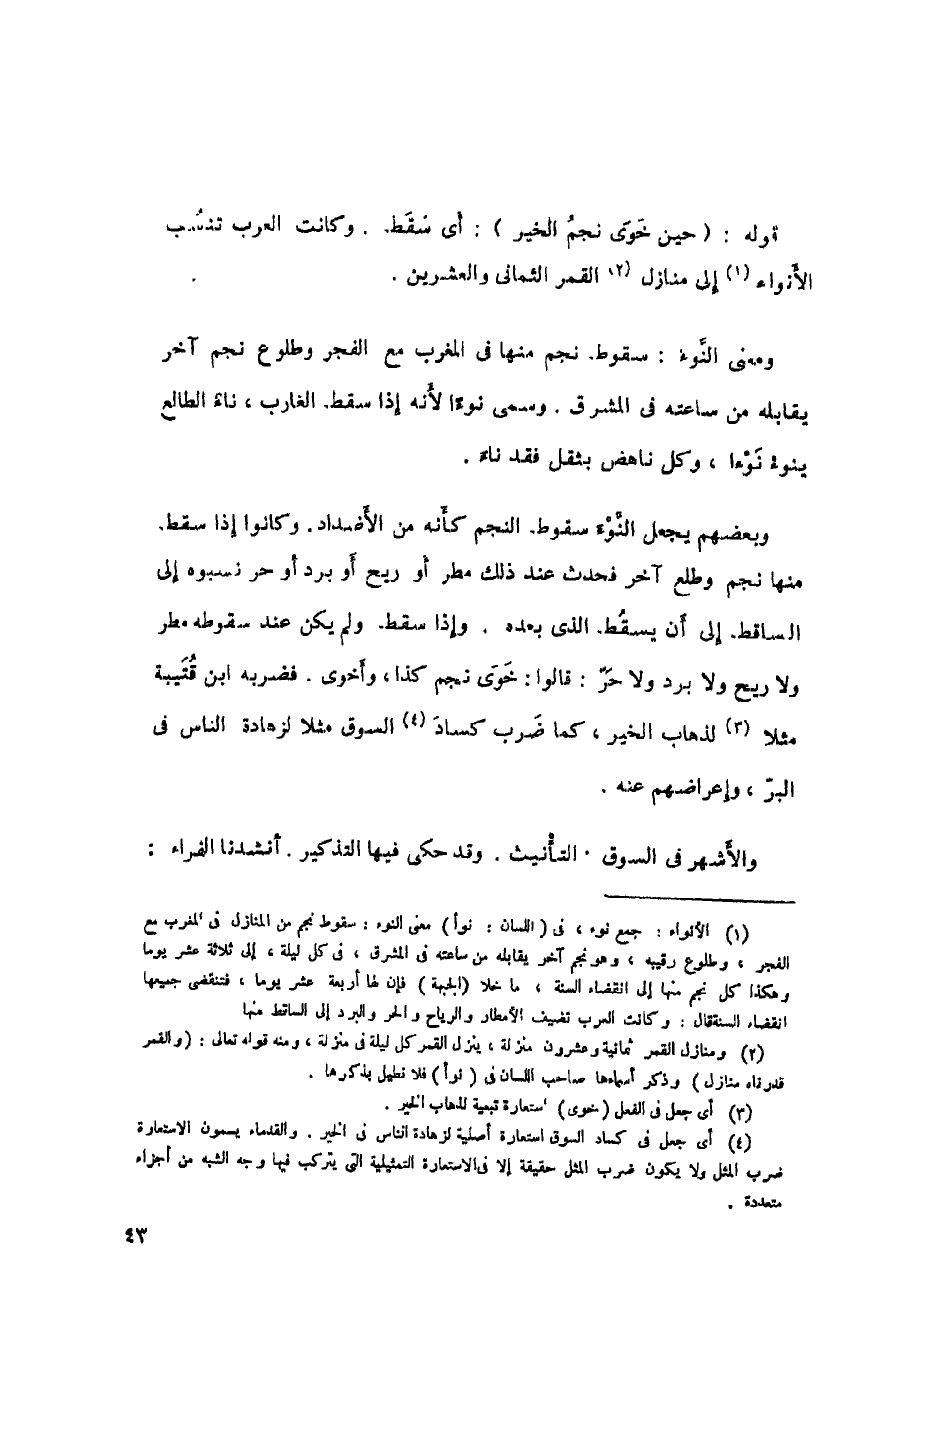 قوله : ( حين خَوَى نجمُ الخير ) : أى سَقَط . وكانت العرب تنسُب
الأَنواء (١) إلى منازل (٢) القمر الثمانى والعشرين .
ومعنى النَّوء : سقوط نجم منها فى المغرب مع الفجر وطلوع نجم آخر
يقابله من ساعته فى المشرق . وسمى نوءًا لأَنه إذا سقط الغارب ، ناءَ الطالع
ينوءُ نَوْءا ، وكل ناهض بثقل فقد ناءَ .
وبعضهم يجعل النَّوْءَ سقوط النجم كأَنه من الأَضداد . وكانوا إذا سقط
منها نجم وطلع آخر فحدث عند ذلك مطر أو ريح أَو برد أو حر نسبوه إلى
الساقط إلى أَن يسقُط الذى بعده . وإذا سقط ولم يكن عند سقوطه مطر
ولا ريح ولا برد ولا حَرّ : قالوا : خَوَى نجم كذا ، وأَخوى . فضربه ابن قُتَيبة
مثلا (٣) لذهاب الخير ، كما ضَرب كسادَ (٤) السوق مثلا لزهادة الناس فى
البرّ ، وإعراضهم عنه .
والأَشهر فى السوق التأْنيث . وقد حكى فيها التذكير . أنشدنا الفراء :
(١) الأنواء : جمع نوء ، فى ( اللسان : نوأ ) معنى النوء : سقوط نجم من المنازل فى المغرب مع
الفجر ، وطلوع رقيبه ، وهو نجم آخر يقابله من ساعته فى المشرق ، فى كل ليلة ، إلى ثلاثة عشر يوما
وهكذا كل نجم منها إلى انقضاء السنة ، ما خلا ( الجبهة ) فإن لها أربعة عشر يوما ، فتنقضى جميعها
انقضاء السنة قال : وكانت العرب تضيف الأمطار والرياح والحر والبرد إلى الساقط منها
(٢) ومنازل القمر ثمانية وعشرون منزلة ، ينزل القمر كل ليلة فى منزلة ، ومنه قوله تعالى : ( والقمر
قدرناه منازل ) وذكر أسماءها صاحب اللسان فى ( نوأ ) فلا نطيل بذكرها .
(٣) أى جعل فى الفعل ( خوى ) استعارة تبعية لذهاب الخير .
(٤) أى جعل فى كساد السوق استعارة أصلية لزهادة الناس فى الخير . والقدماء يسمون الاستعارة
ضرب المثل ولا يكون ضرب المثل حقيقة إلا فى الاستعارة التمثيلية التى يتركب فيها وجه الشبه من أجزاء
متعددة .
٤٣